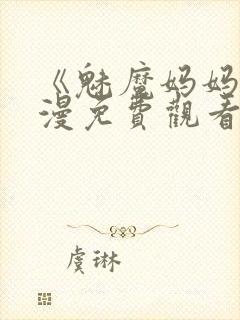 《魅魔妈妈
漫免費觀看
虞琳